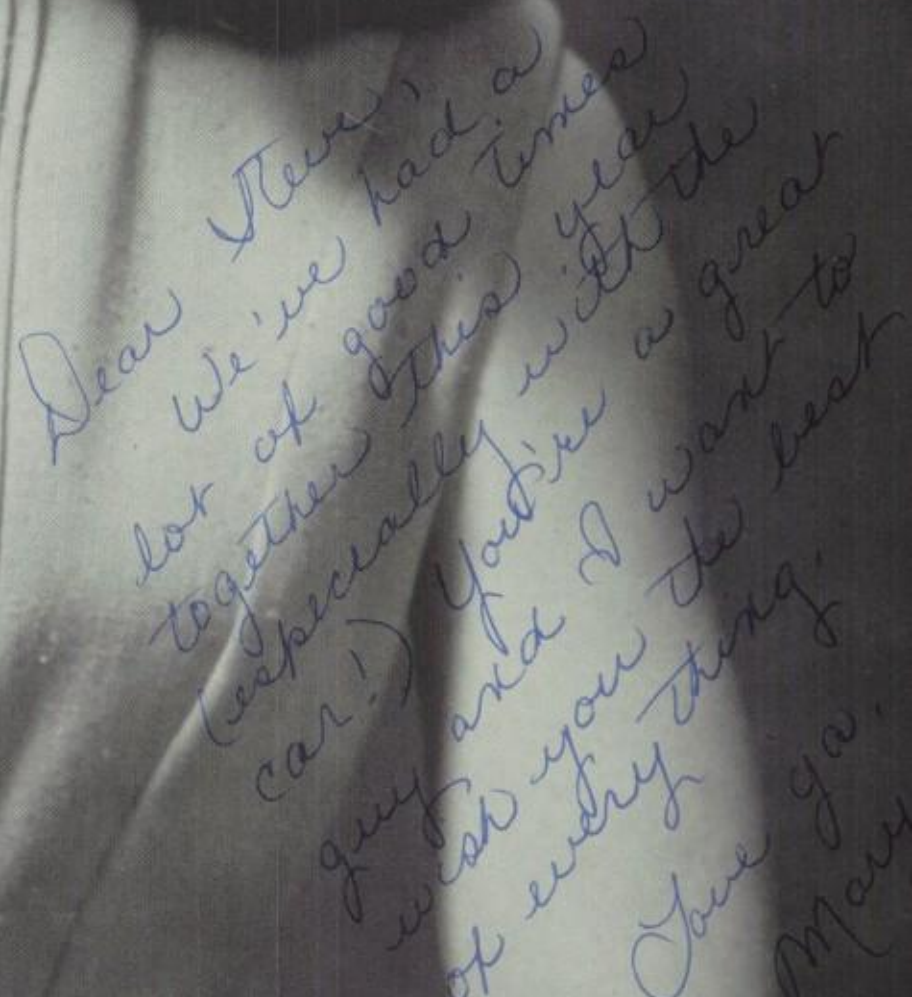 Dear Steve,
We've had a
lot of good times
together this year
(especially with the
car!) You're a great
guy and I want to
wish you the best
of every thing.
Love ya.
Mary